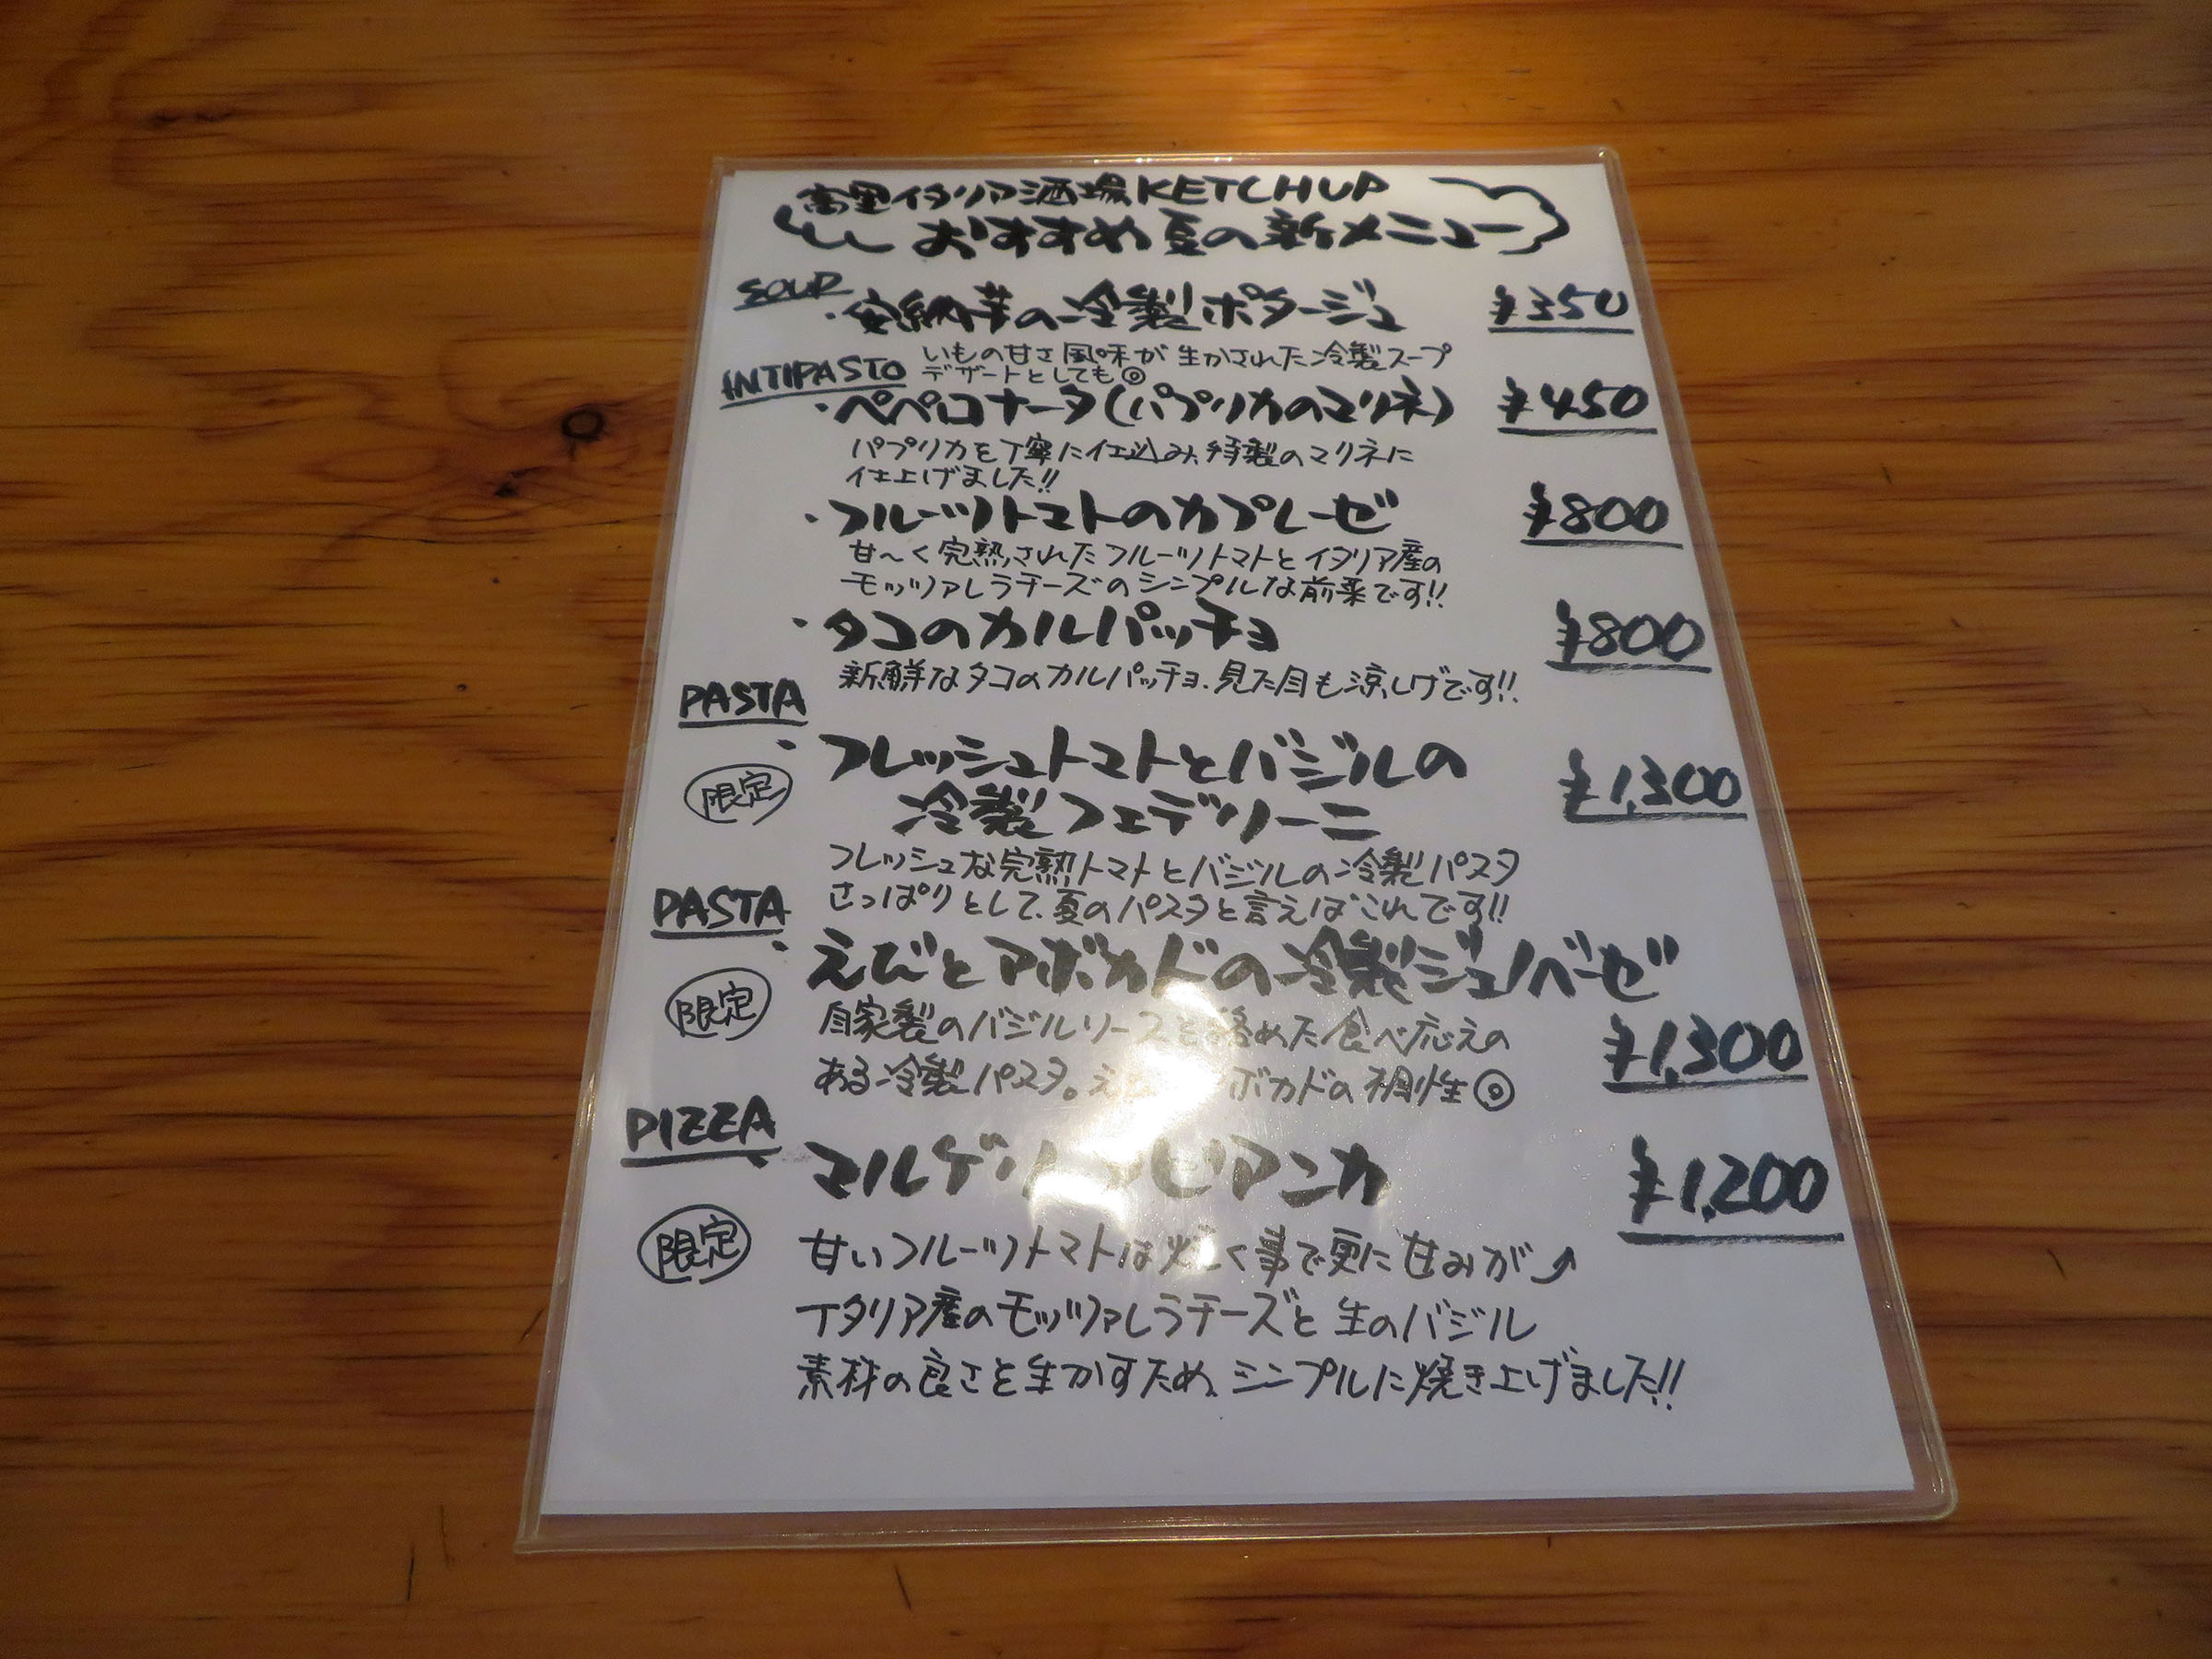 高里イタリア酒場KETCHUP
おすすめ夏の新メニュー
SOUP
・安納芋の冷製ポタージュ ¥350
いもの甘さ風味が生かされた冷製スープ
デザートとしても◎
ANTIPASTO
・ペペロナータ(パプリカのマリネ) ¥450
パプリカを丁寧に仕込み、特製のマリネに
仕上げました!!
・フルーツトマトのカプレーゼ ¥800
甘〜く完熟されたフルーツトマトとイタリア産の
モッツァレラチーズのシンプルな前菜です!!
・タコのカルパッチョ ¥800
新鮮なタコのカルパッチョ、見た目も涼しげです!!
PASTA
・フレッシュトマトとバジルの ¥1,300
限定
冷製フェデリーニ
フレッシュな完熟トマトとバジルの冷製パスタ
さっぱりとして、夏のパスタと言えばこれです!!
PASTA
・えびとアボカドの冷製ジェノベーゼ
限定
自家製のバジルソースと絡めた食べ応えの ¥1,300
ある冷製パスタ。 ボカドの相性◎
PIZZA
・マルゲリ ビアンカ ¥1,200
限定
甘いフルーツトマトは く事で更に甘みが⤴
イタリア産のモッツァレラチーズと生のバジル
素材の良さを生かすため、シンプルに焼き上げました!!